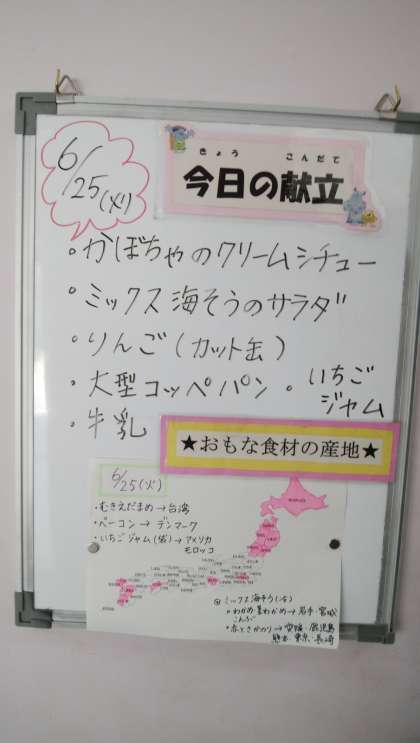 6/25(火)
きょう こんだて
今日の献立
・かぼちゃのクリームシチュー
・ミックス海そうのサラダ
・りんご(カット缶)
・大型コッペパン ・いちごジャム
・牛乳
★おもな食材の産地★
6/25(火)
・むきえだまめ→台湾
・ベーコン→デンマーク
・いちごジャム(苺)→アメリカ
モロッコ
ミックス海そう
わかめ 茎わかめ→岩手 宮城
こんぶ
愛媛 鹿児島
熊本 東京 長崎